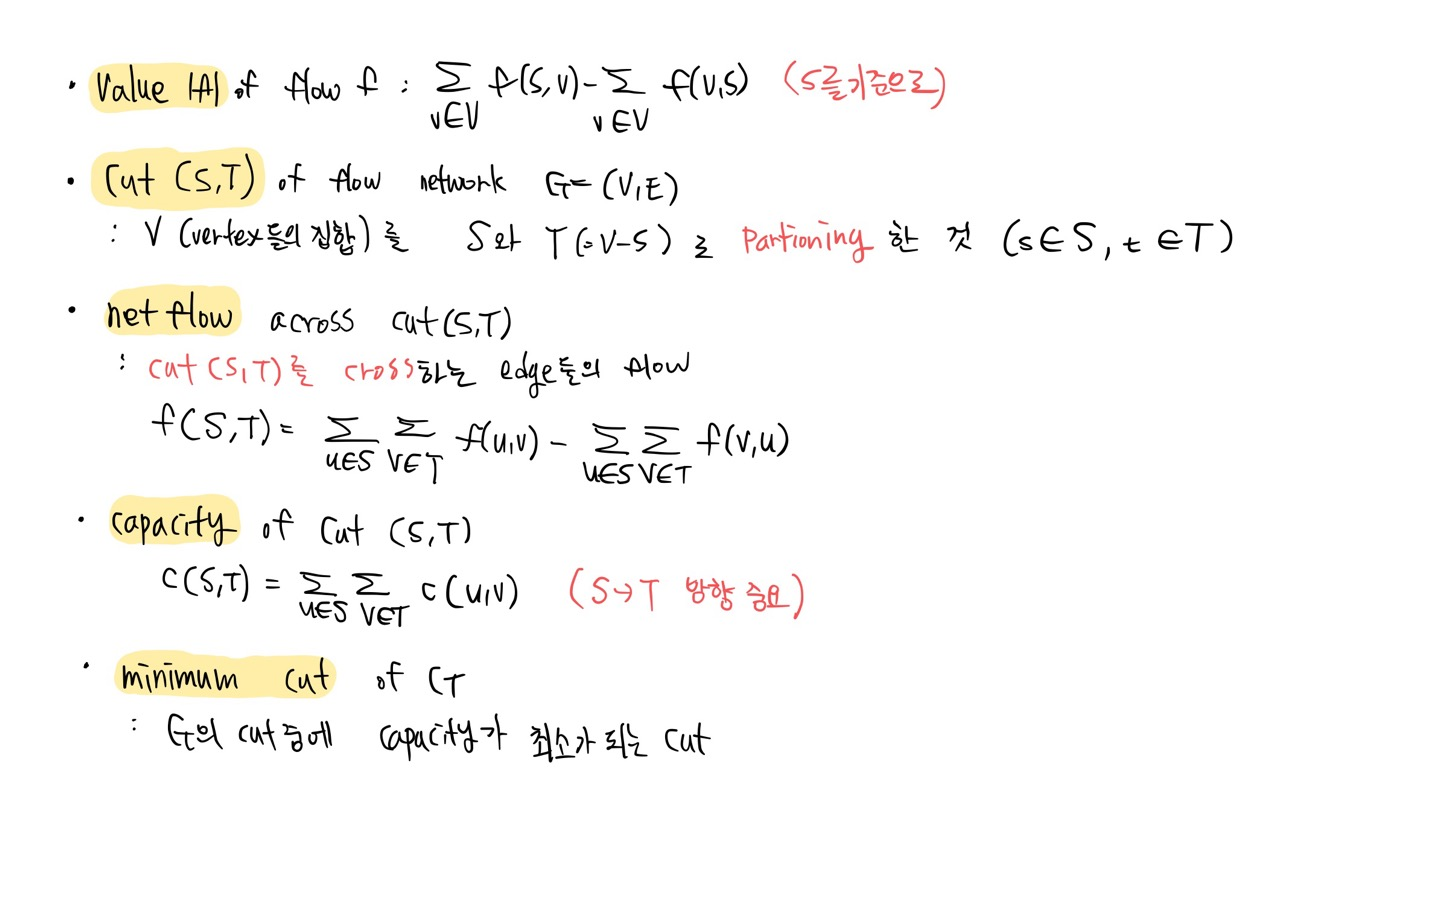 • Value |f| of flow f : ∑_{v∈V} f(S,V) - ∑_{v∈V} f(V,S) (S를 기준으로)
• Cut (S,T) of flow network G=(V,E)
: V (vertex들의 집합)를 S와 T(=V-S)로 Partioning 한 것 (s∈S, t∈T)
• net flow across cut(S,T)
: cut(S,T)를 cross하는 edge들의 flow
f(S,T) = ∑_{u∈S} ∑_{v∈T} f(u,v) - ∑_{u∈S} ∑_{v∈T} f(v,u)
• capacity of Cut (S,T)
c(S,T) = ∑_{u∈S} ∑_{v∈T} c(u,v) (S→T 방향 중요)
• minimum cut of G
: G의 cut 중에 capacity가 최소가 되는 cut